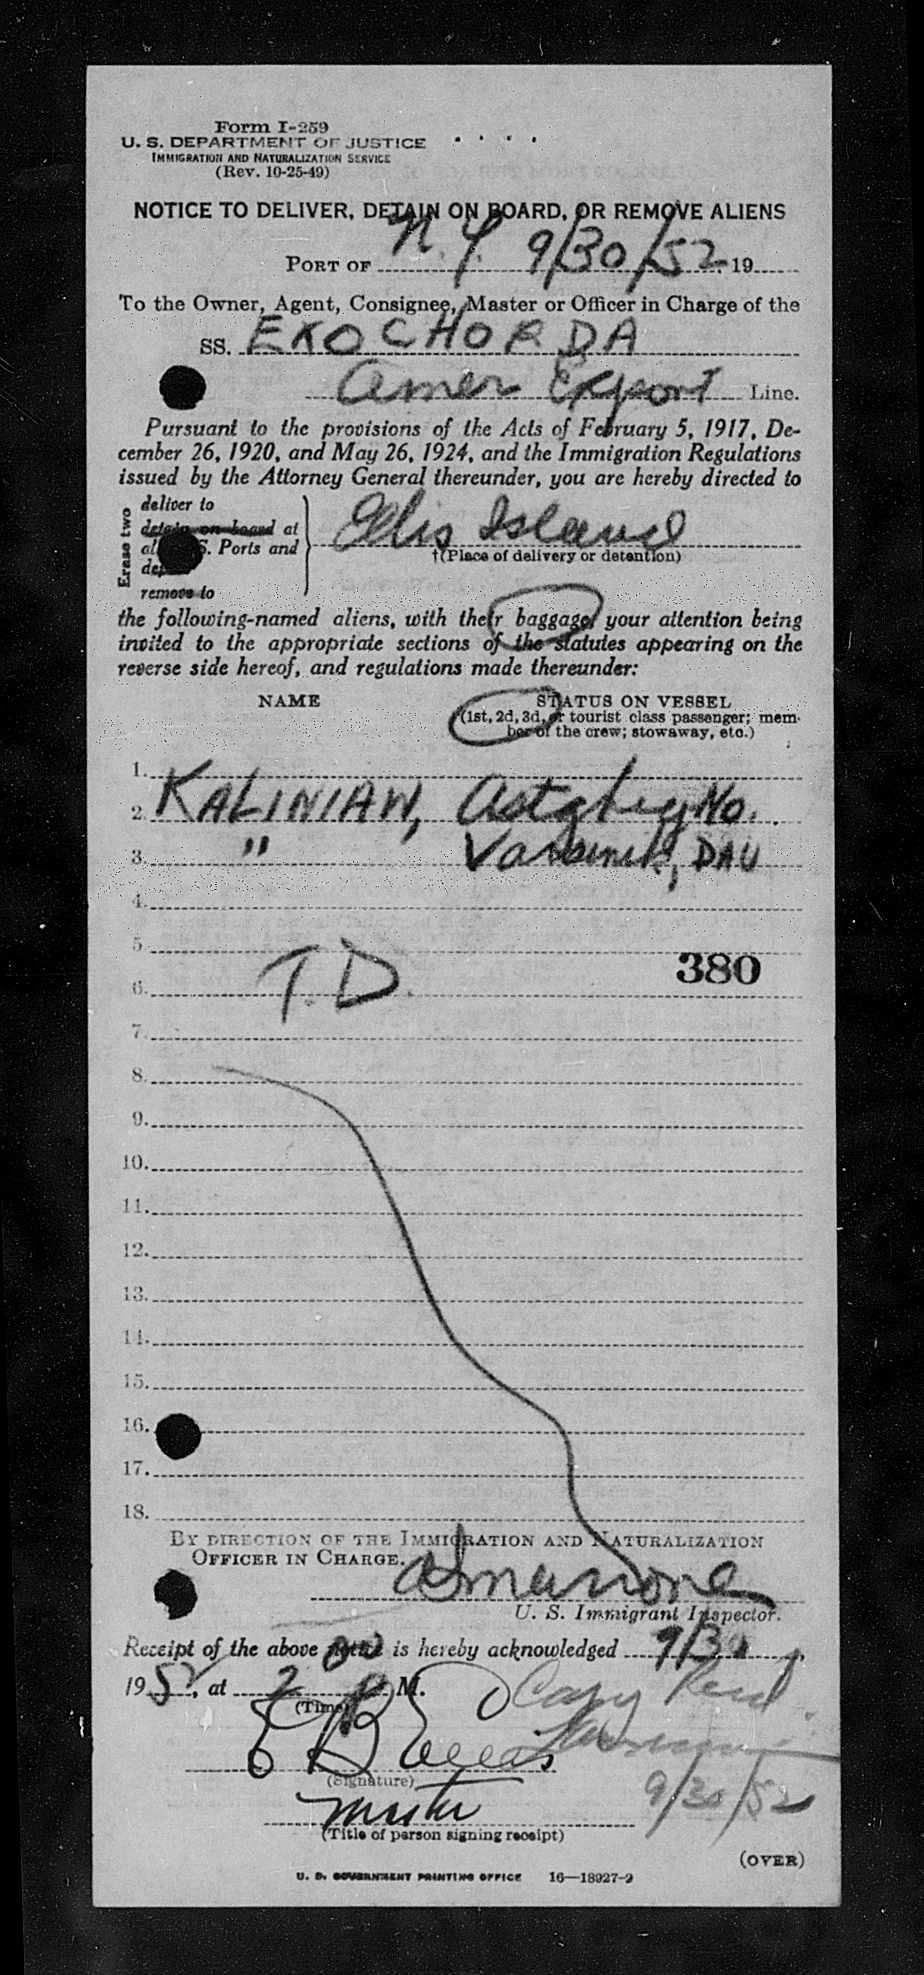 Form I-259
U. S. DEPARTMENT OF JUSTICE
IMMIGRATION AND NATURALIZATION SERVICE
(Rev. 10-25-49)
NOTICE TO DELIVER, DETAIN ON BOARD, OR REMOVE ALIENS
PORT OF N.Y. 9/30/52 19
To the Owner, Agent, Consignee, Master or Officer in Charge of the
SS. EXOCHORDA
Amer Export Line.
Pursuant to the provisions of the Acts of February 5, 1917, De-
cember 26, 1920, and May 26, 1924, and the Immigration Regulations
issued by the Attorney General thereunder, you are hereby directed to
Erase two
deliver to
detain on board at
S. Ports and
remove to
Ellis Island
†(Place of delivery or detention)
the following-named aliens, with their baggage, your attention being
invited to the appropriate sections of the statutes appearing on the
reverse side hereof, and regulations made thereunder:
NAME STATUS ON VESSEL
(1st, 2d, 3d, or tourist class passenger; mem-
ber of the crew; stowaway, etc.)
1.
2. KALINIAN, Astghig No.
3. " Varsenik, DAU
4.
5.
6. T.D. 380
7.
8.
9.
10.
11.
12.
13.
14.
15.
16.
17.
18.
BY DIRECTION OF THE IMMIGRATION AND NATURALIZATION
OFFICER IN CHARGE.
U. S. Immigrant Inspector.
Receipt of the above notice is hereby acknowledged 9/30,
1952, at 2 00 P M.
(Time)
Copy Recd
(Signature)
9/30/52
Master
(Title of person signing receipt)
(OVER)
U. S. GOVERNMENT PRINTING OFFICE 16—18927-2